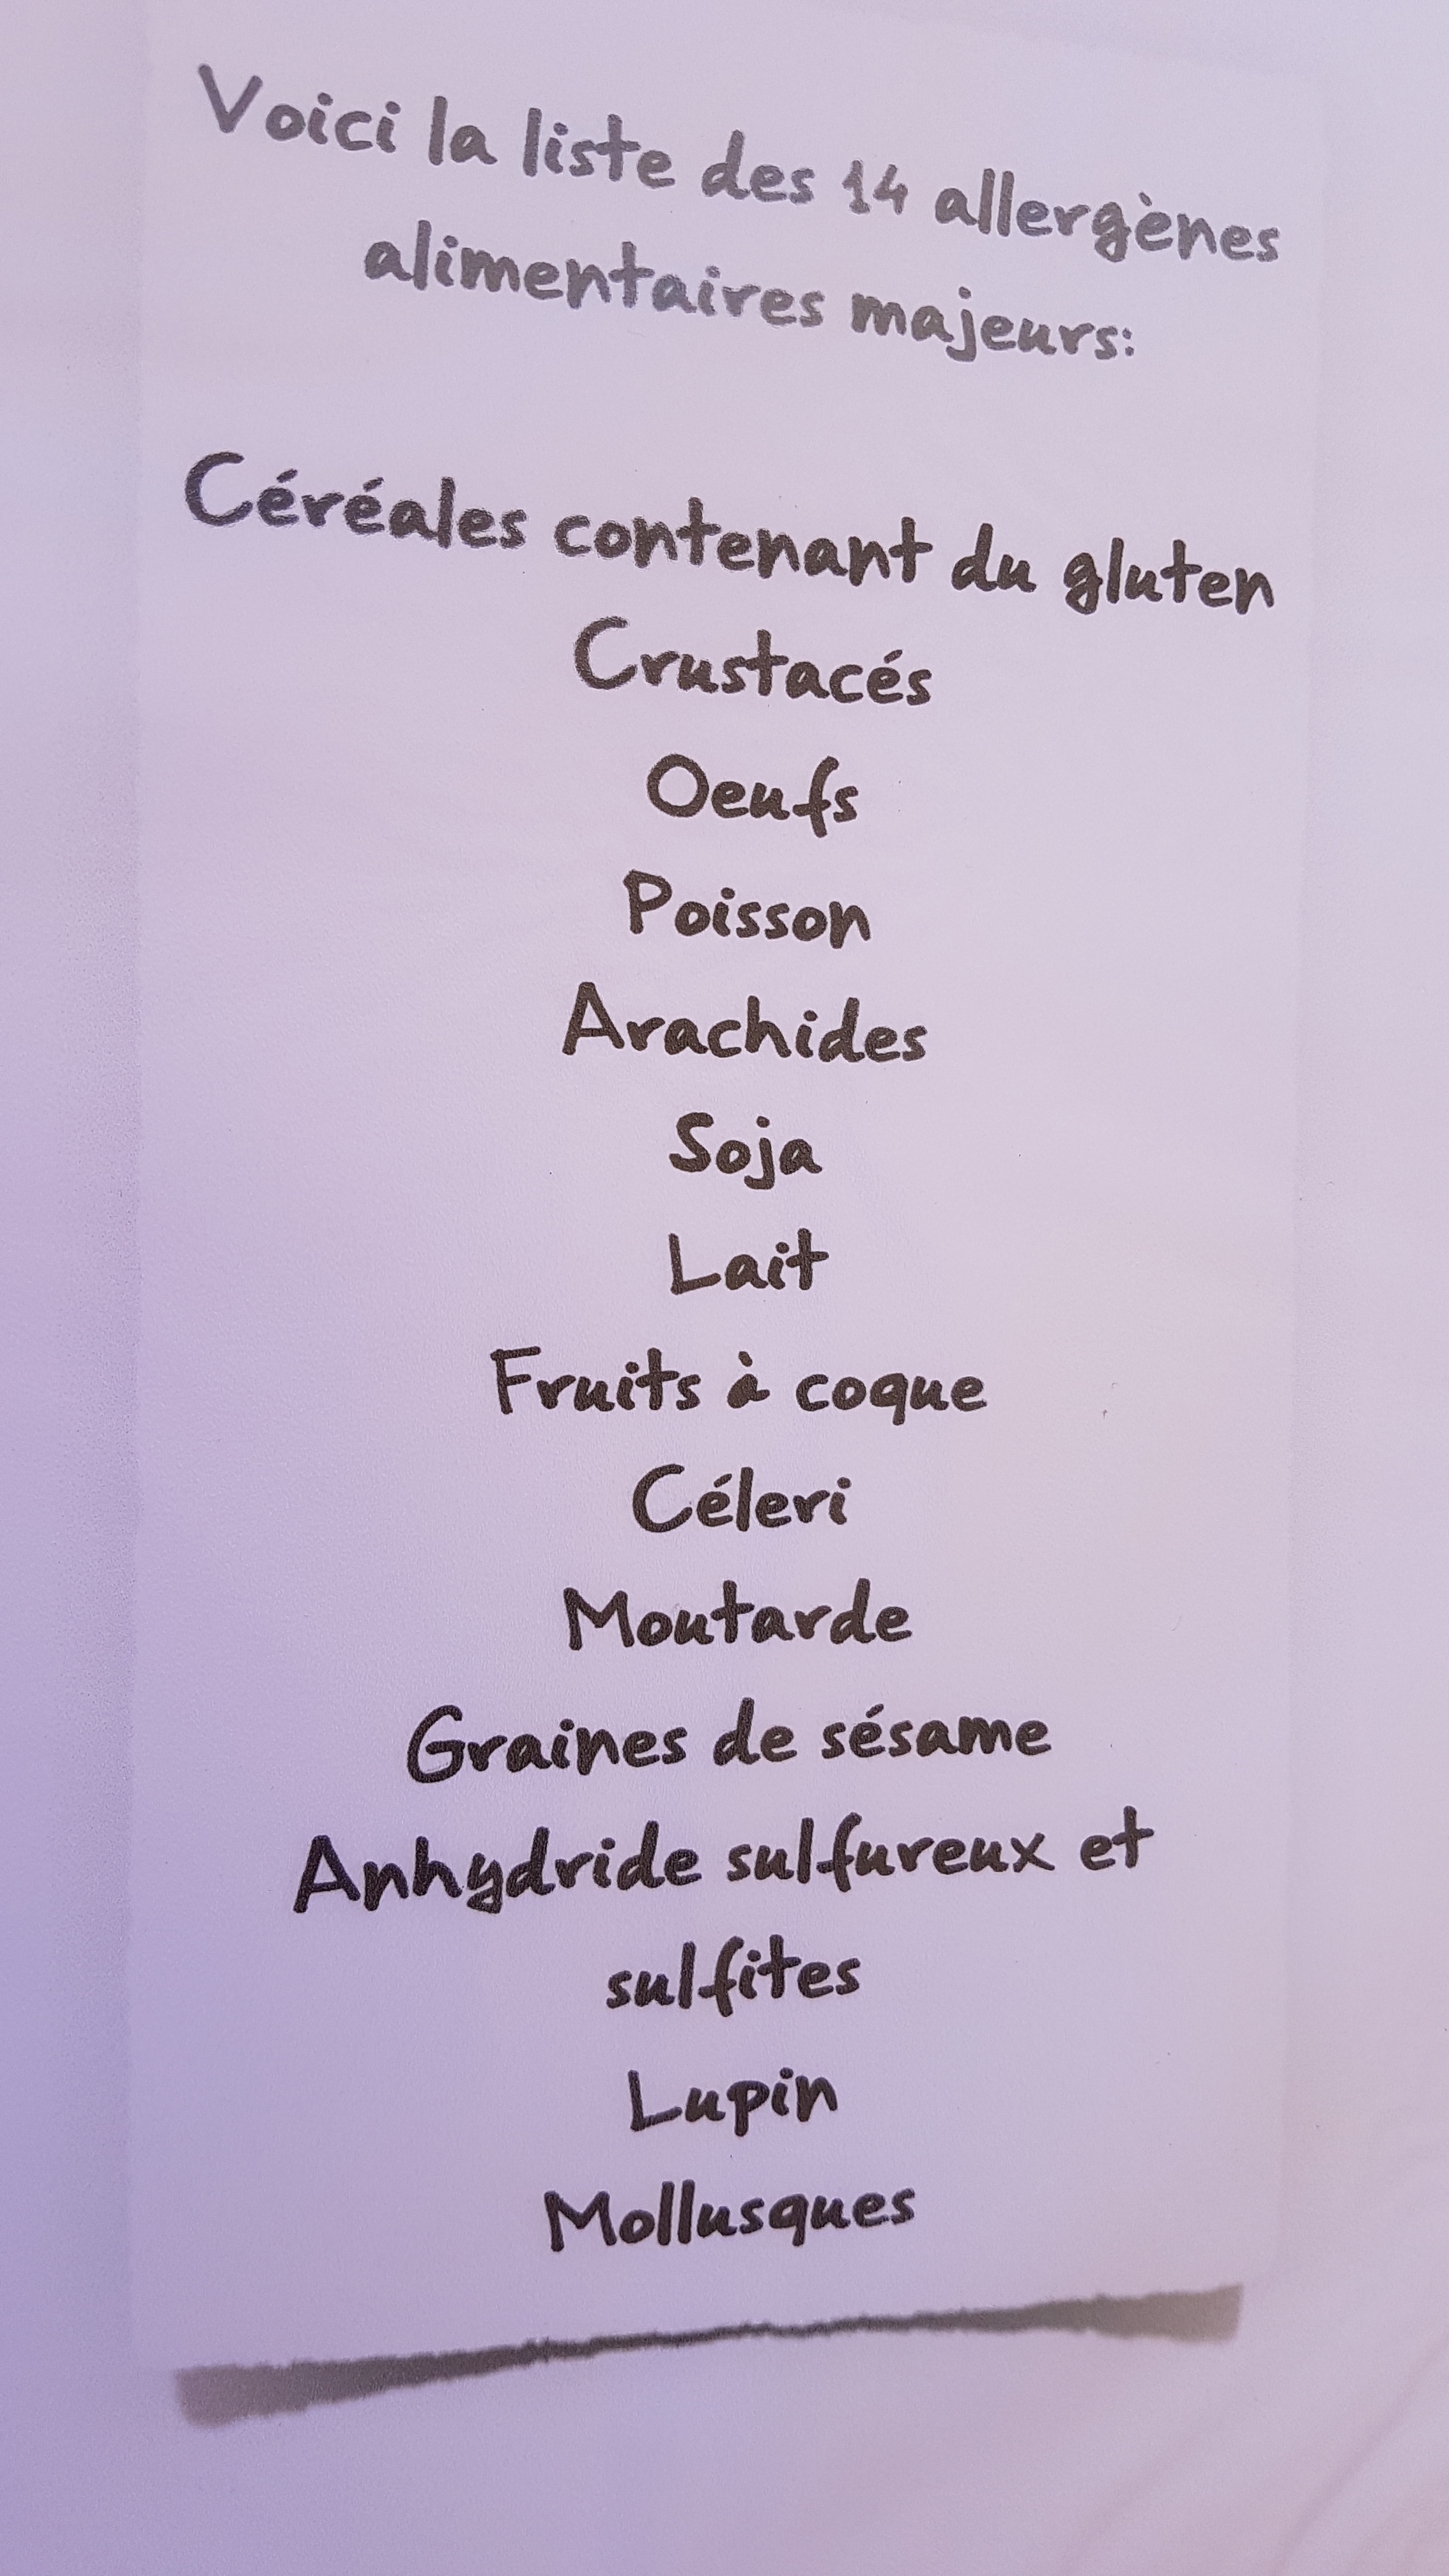 Voici la liste des 14 allergènes
alimentaires majeurs:
Céréales contenant du gluten
Crustacés
Oeufs
Poisson
Arachides
Soja
Lait
Fruits à coque
Céleri
Moutarde
Graines de sésame
Anhydride sulfureux et
sulfites
Lupin
Mollusques